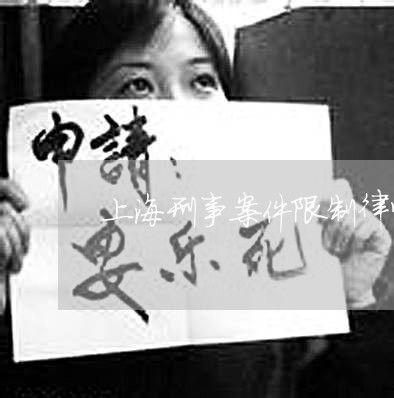 申請：
上海刑事案件限制律
安乐死